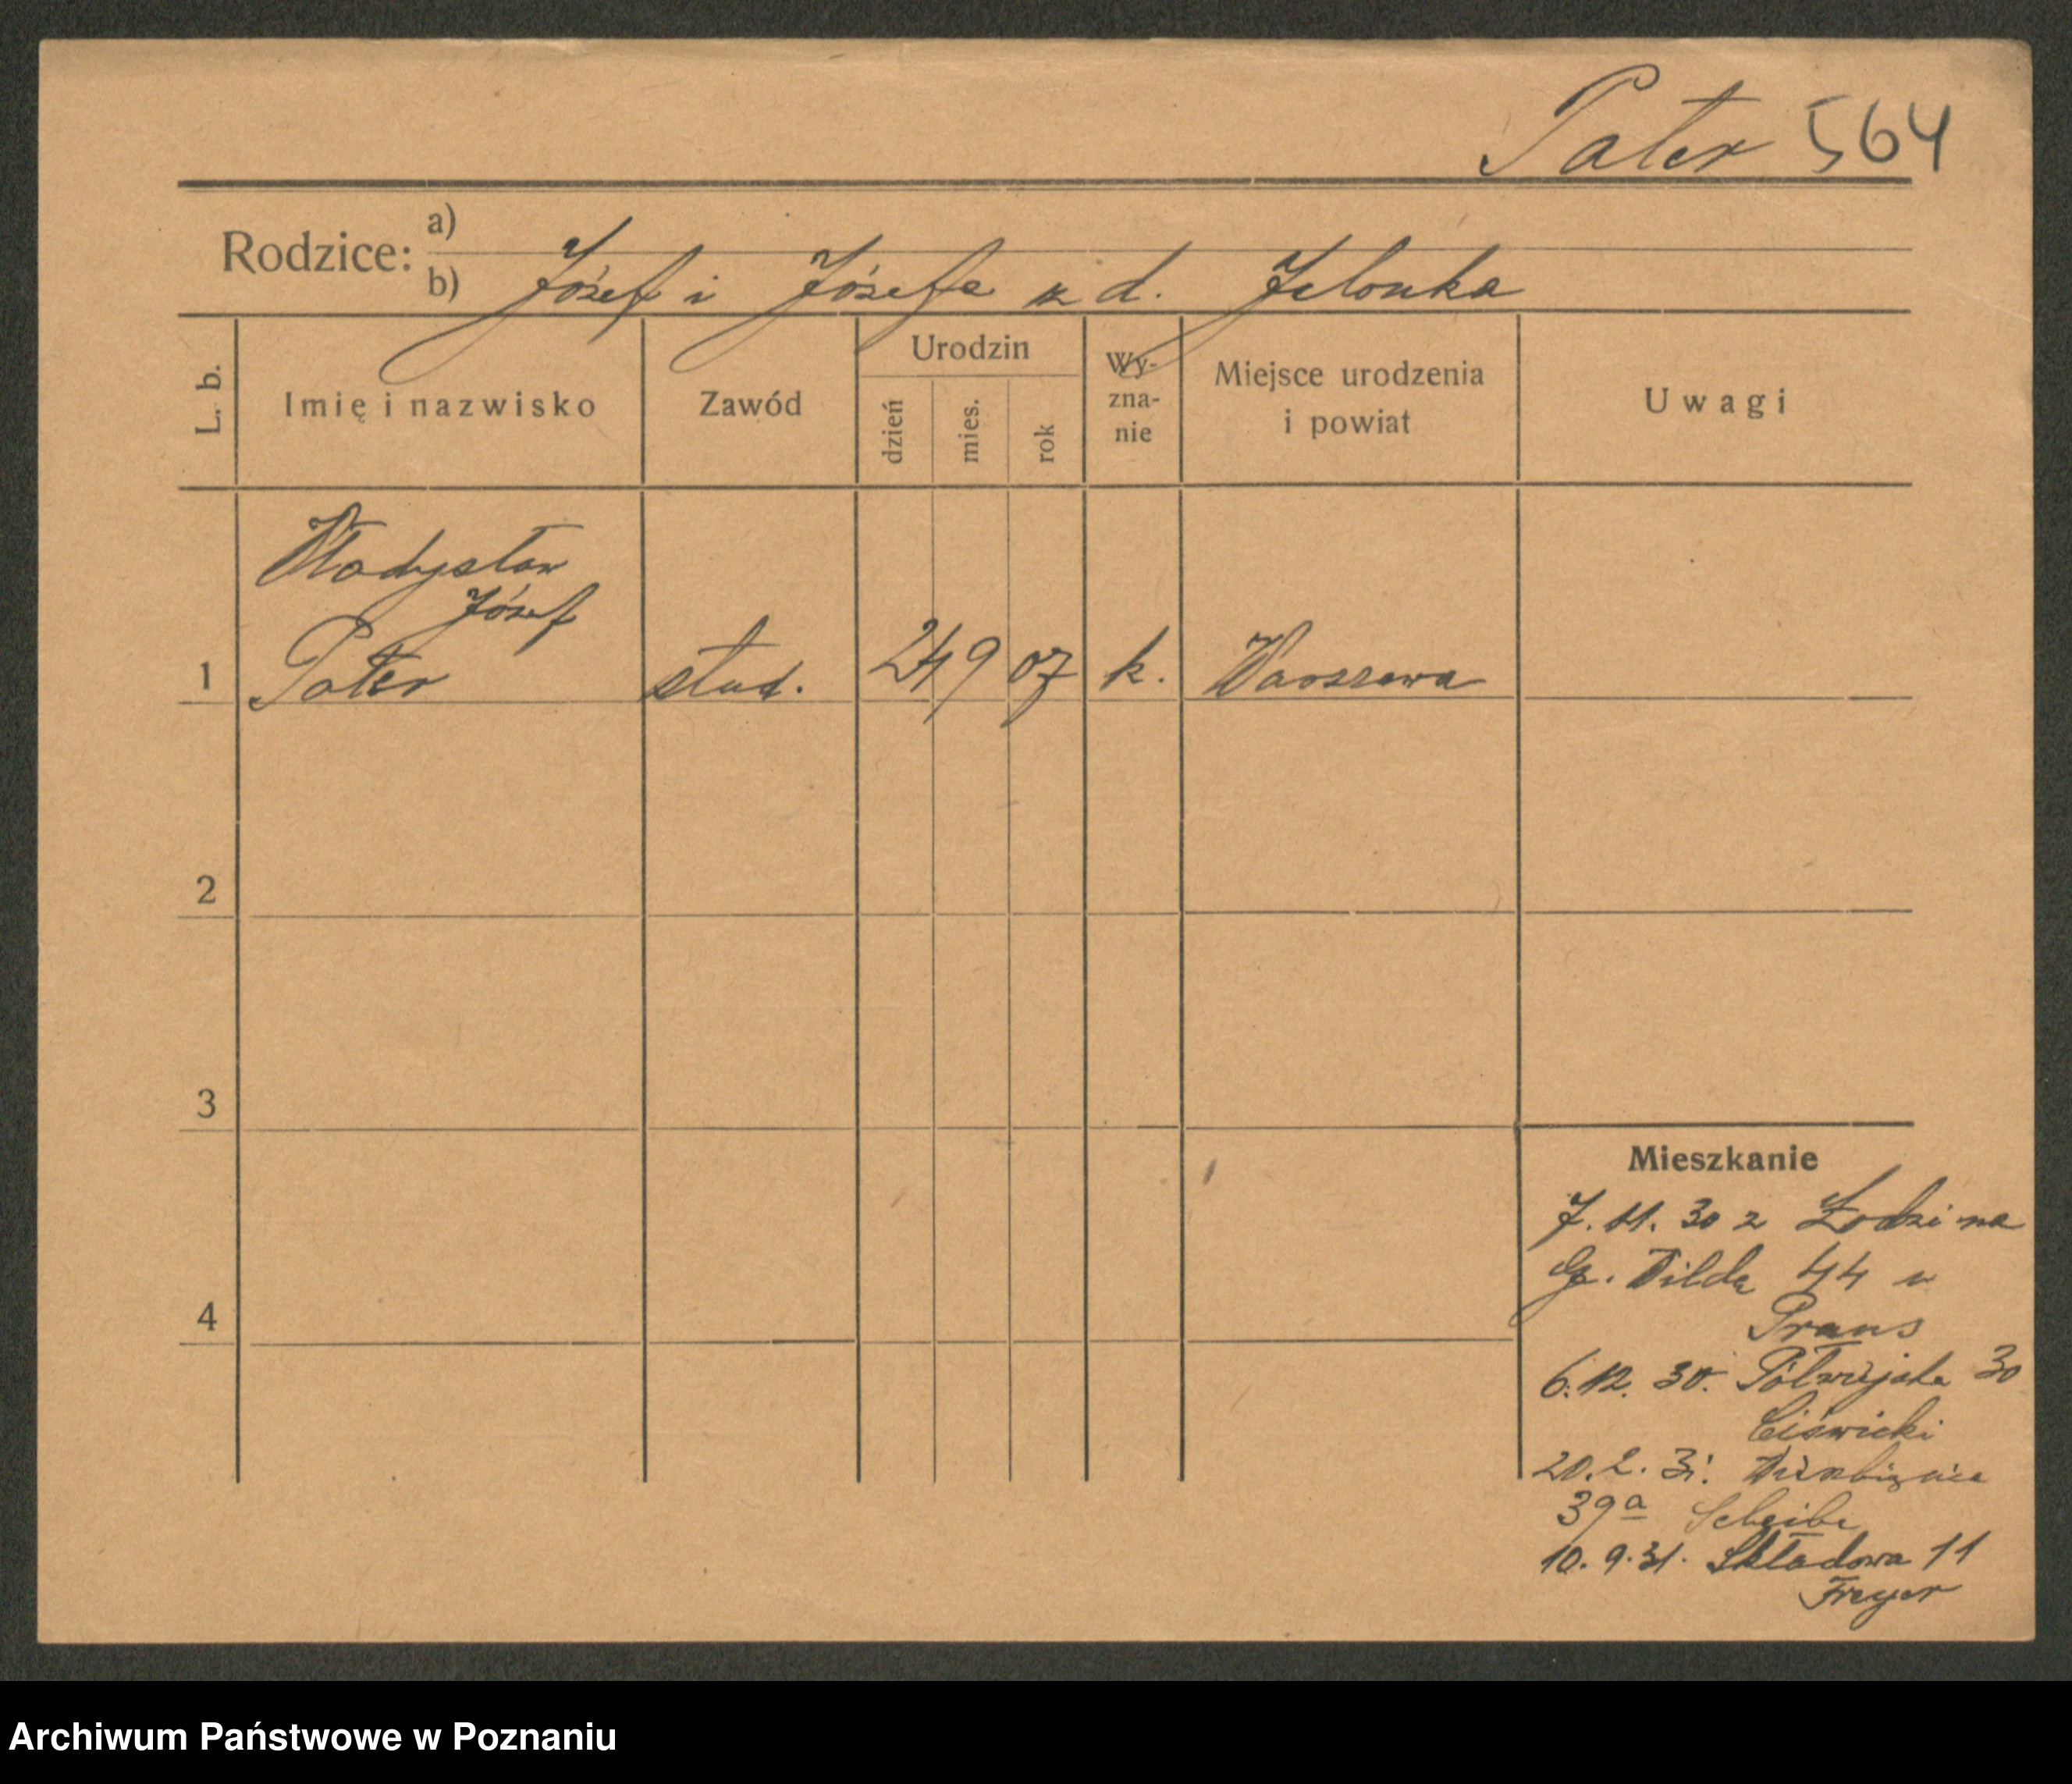 Pater 564
Rodzice:
a)
b) Józef i Józefa z d. Jelonka
L. b.
Imię i nazwisko
Zawód
Urodzin
dzień
mies.
rok
Wy-
zna-
nie
Miejsce urodzenia
i powiat
Uwagi
Władysław
Józef
1 Pater stud. 24 9 07 k. Warszawa
2
3
4
Mieszkanie
7. 11. 30 z Łodzi na
G. Wilda 44 u
Prans
6. 12. 30. Półwiejska 30
Ciświcki
20. 2. 31. Wierzbięcice
39a Scheibe
10. 9. 31. Składowa 11
Freyer
Archiwum Państwowe w Poznaniu